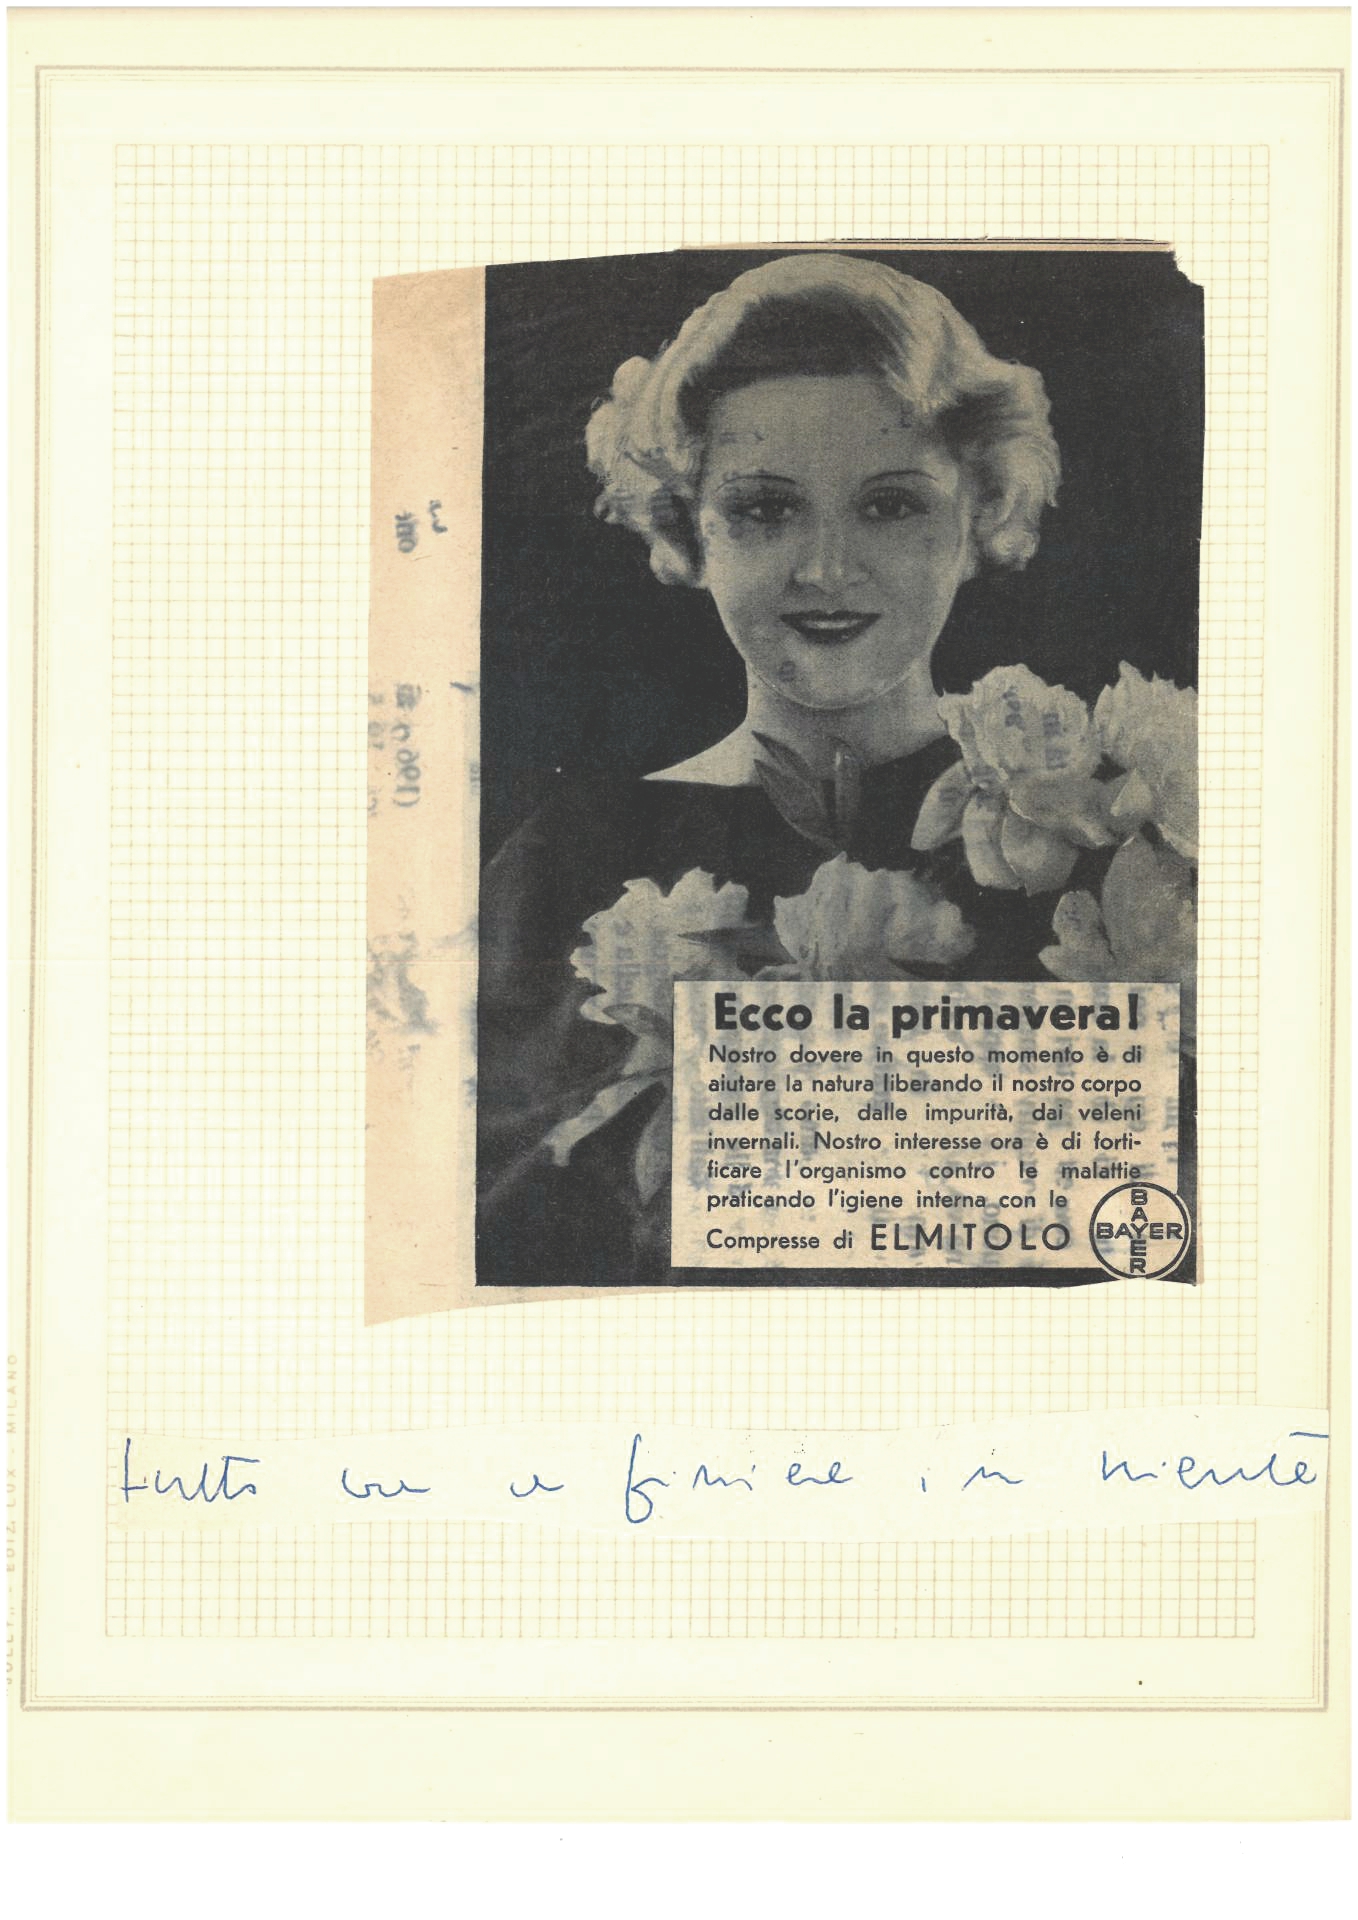 Ecco la primavera!
Nostro dovere in questo momento è di
aiutare la natura liberando il nostro corpo
dalle scorie, dalle impurità, dai veleni
invernali. Nostro interesse ora è di forti-
ficare l'organismo contro le malattie
praticando l'igiene interna con le
Compresse di ELMITOLO
BAYER
BAYER
tutto va a finire in niente
EDIZ. LUX - MILANO